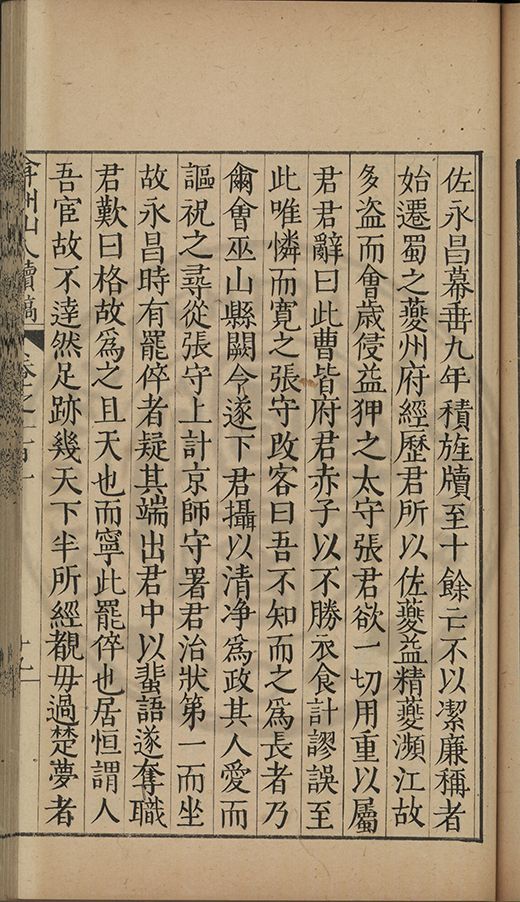 佐永昌幕垂九年積旌牘至十餘亡不以潔廉稱者
始遷蜀之夔州府經歷君所以佐夔益精夔瀕江故
多盗而會歲侵益狎之太守張君欲一切用重以屬
君君辭曰此曹皆府君赤子以不勝衣食計謬誤至
此唯憐而寛之張守改客曰吾不知而之爲長者乃
爾會巫山縣闕令遂下君攝以清净爲政其人愛而
謳祝之尋從張守上計京師守署君治狀第一而坐
故永昌時有罷倅者疑其端出君中以蜚語遂奪職
君歎曰格故爲之且天也而寧此罷倅也居恒謂人
吾宦故不達然足跡幾天下半所經覩毋過楚夢者
弇州山人續稿
卷之一百